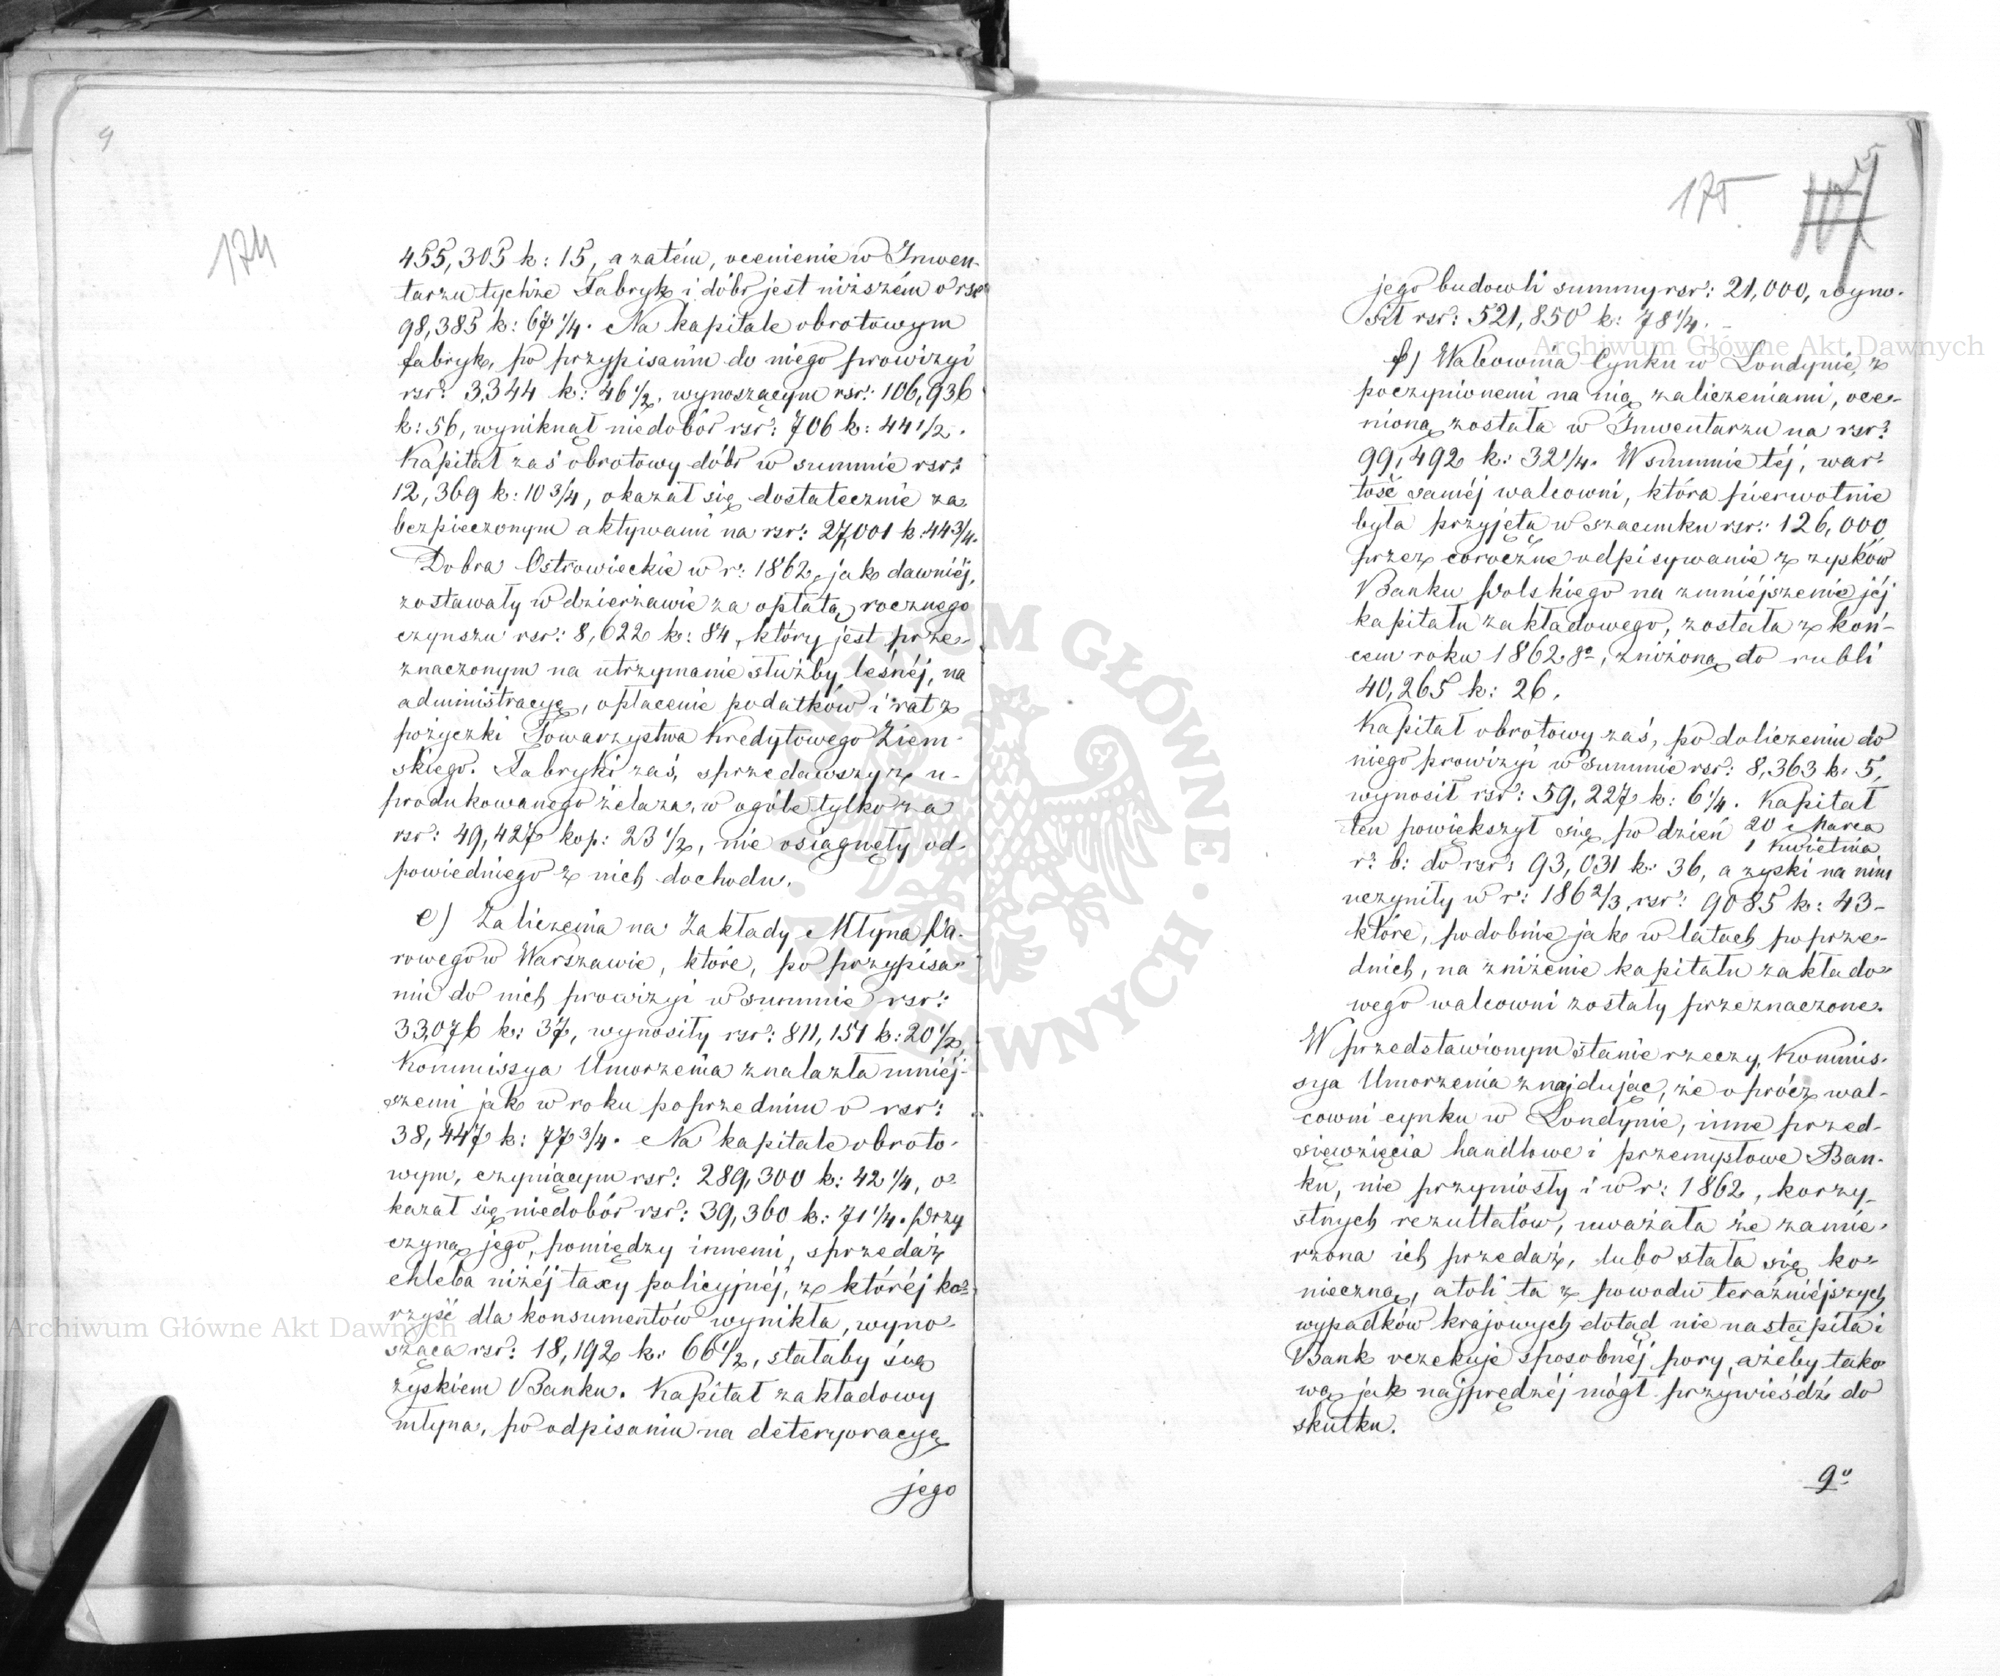 9
174
455,305 k: 15, a zatém, ocenienie w Inwen-
tarzu tychże Fabryk i dóbr jest niższém o rsr
98,385 k: 67 1/4. Na kapitale obrotowym
fabryk, po przypisaniu do niego prowizyi
rsr: 3,344 k: 46 1/2, wynoszącym rsr: 106,936
k: 56, wyniknął niedobór rsr: 706 k: 44 1/2.
Kapitał zaś obrotowy dóbr w summie rsr:
12,369 k: 10 3/4, okazał się dostatecznie za-
bezpieczonym aktywami na rsr: 27,001 k: 44 3/4.
Dobra Ostrowieckie w r: 1862, jak dawniéj,
zostawały w dzierżawie za opłatą rocznego
czynszu rsr: 8,622 k: 84, który jest prze-
znaczonym na utrzymanie służby leśnéj, na
administracyę, opłacenie podatków i rat z
pożyczki Towarzystwa Kredytowego Ziem-
skiego. Fabryki zaś, sprzedawszy z u-
produkowanego żelaza, w ogóle tylko za
rsr: 49,427 kop: 23 1/2, nie osiągnęły od-
powiedniego z nich dochodu.
e) Zaliczenia na Zakłady Młyna Pa-
rowego w Warszawie, które, po przypisa-
niu do nich prowizyi w summie rsr:
33,076 k: 37, wynosiły rsr: 811,151 k: 20 1/2,
Kommissya Umorzenia znalazła mniéj-
szemi jak w roku poprzednim o rsr:
38,447 k: 77 3/4. Na kapitale obroto-
wym, czyniącym rsr: 289,300 k: 42 1/4, o-
kazał się niedobór rsr: 39,360 k: 71 1/4. Przy
czyną jego, pomiędzy innemi, sprzedaż
chleba niżéj taxy policyjnéj, z któréj ko-
rzyść dla konsumentów wynikła, wyno-
sząca rsr: 18,192 k: 66 1/2, stałaby się
zyskiem Banku. Kapitał zakładowy
młyna, po odpisaniu na deteryoracyę
jego
175
107
jego budowli summy rsr: 21,000, wyno-
sił rsr: 521,850 k: 78 1/4.
f) Walcownia Cynku w Londynie, z
poczynionemi na nią zaliczeniami, oce-
nioną została w Inwentarzu na rsr:
99,492 k: 32 1/4. W summie téj, war-
tość saméj walcowni, która pierwotnie
była przyjęta w szacunku rsr: 126,000
przez coroczne odpisywanie z zysków
Banku Polskiego na zmniéjszenie jéj
kapitału zakładowego, została z koń-
cem roku 1862 go, zniżoną do rubli
40,265 k: 26.
Kapitał obrotowy zaś, po doliczeniu do
niego prowizyi w summie rsr: 8,363 k: 5,
wynosił rsr: 59,227 k: 6 1/4. Kapitał
ten powiększył się po dzień 20 Marca
1 Kwietnia
r: b: do rsr: 93,031 k: 36, a zyski na nim
uczyniły w r: 186 2/3, rsr: 9085 k: 43-
które, podobnie jak w latach poprze-
dnich, na zniżenie kapitału zakłado-
wego walcowni zostały przeznaczone.
W przedstawionym stanie rzeczy, Kommis-
sya Umorzenia znajdując, że oprócz wal-
cowni cynku w Londynie, inne przed-
sięwzięcia handlowe i przemysłowe Ban-
ku, nie przyniosły i w r: 1862, korzy-
stnych rezultatów, uważała że zamie-
rzona ich przedaż, lubo stała się ko-
nieczną, atoli ta z powodu teraźniéjszych
wypadków krajowych dotąd nie nastąpiła i
Bank oczekuje sposobnéj pory, ażeby tako
wą jak najprędzéj mógł przywieśdź do
skutku.
9o
Archiwum Główne Akt Dawnych
Archiwum Główne Akt Dawnych
ARCHIWUM GŁÓWNE
AKT DAWNYCH